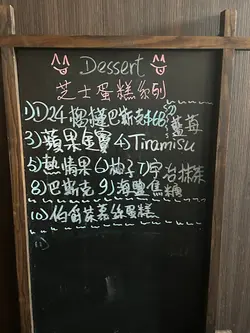 Dessert
芝士蛋糕系列
巴斯克
藍莓
3)蘋果金寶 4)Tiramisu
5)熱情果 6)柚子 7)宇治抹茶
8)巴斯克 9)海鹽焦糖
10)伯爵茶慕絲蛋糕